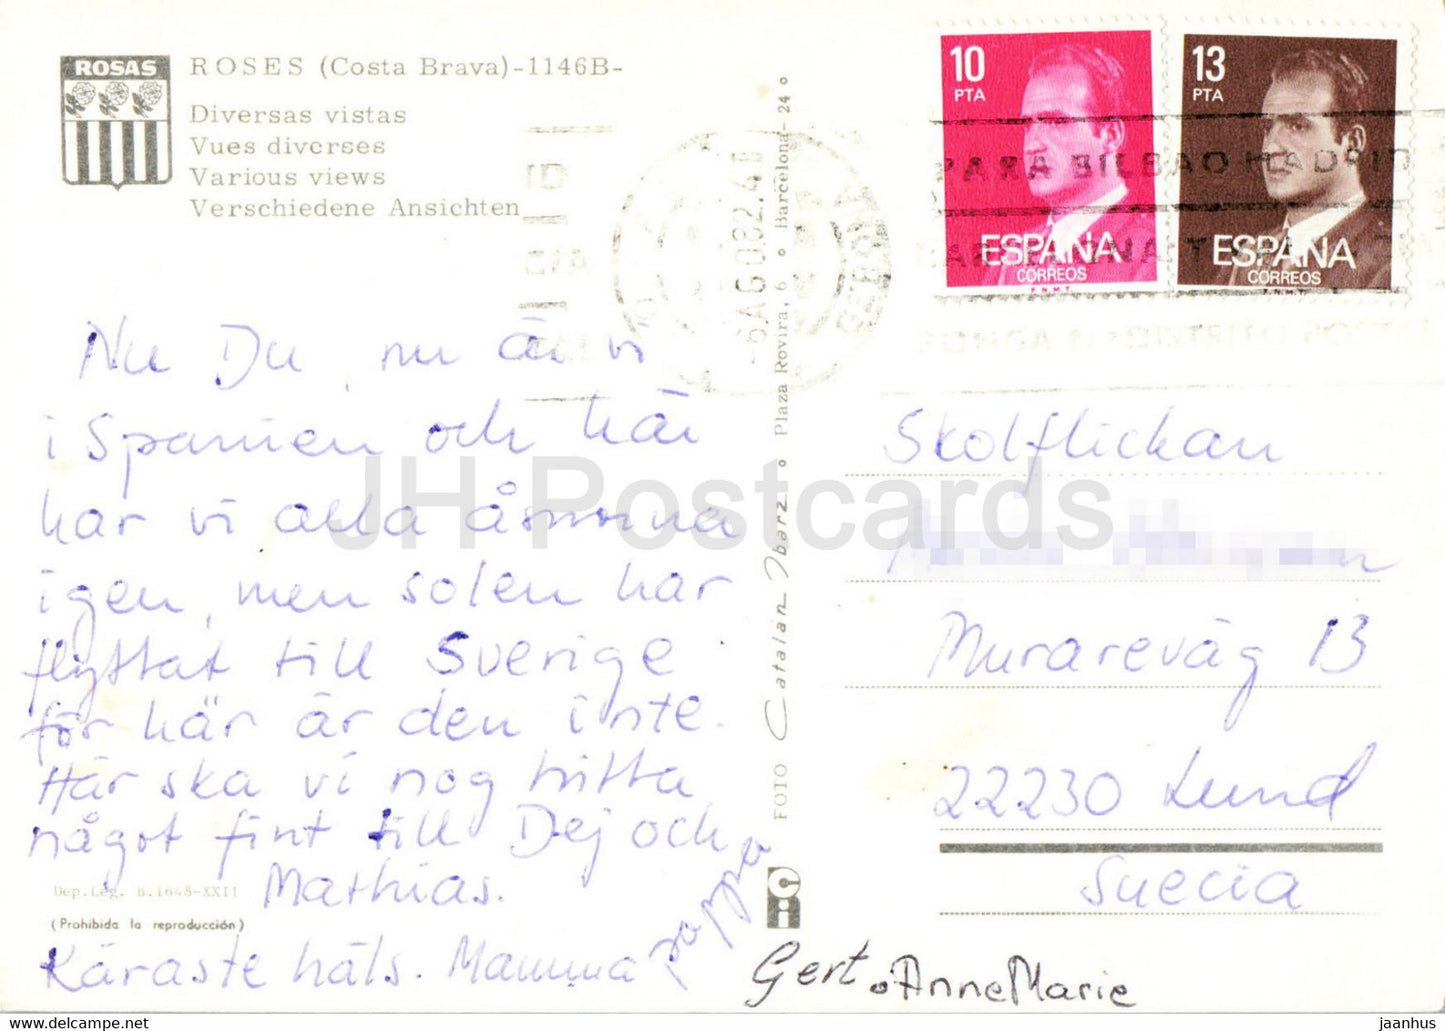 ROSAS
ROSES (Costa Brava)-1146B-
Diversas vistas
Vues diverses
Various views
Verschiedene Ansichten
10
PTA
ESPAÑA
CORREOS
F.N.M.T.
13
PTA
ESPAÑA
CORREOS
F.N.M.T.
PARA BILBAO MADRID
BARCELONA
PONGA DISTRITO POSTAL
AGO82
Nu Du, nu är vi
i Spanien och här
har vi alla åsnorna
igen, men solen har
flyttat till Sverige
för här är den inte.
Här ska vi nog hitta
något fint till Dej och
Mathias.
Käraste häls. Mamma
pappa
Gert. AnneMarie
Dep. Leg. B. 1648-XXII
(Prohibida la reproducción)
FOTO Catalán Ibarz ° Plaza Rovira, 6 ° Barcelona-24 °
ci
Skolflickan
Murareväg 13
22230 Lund
Suecia
JH Postcards
www.delcampe.net
jaanhus